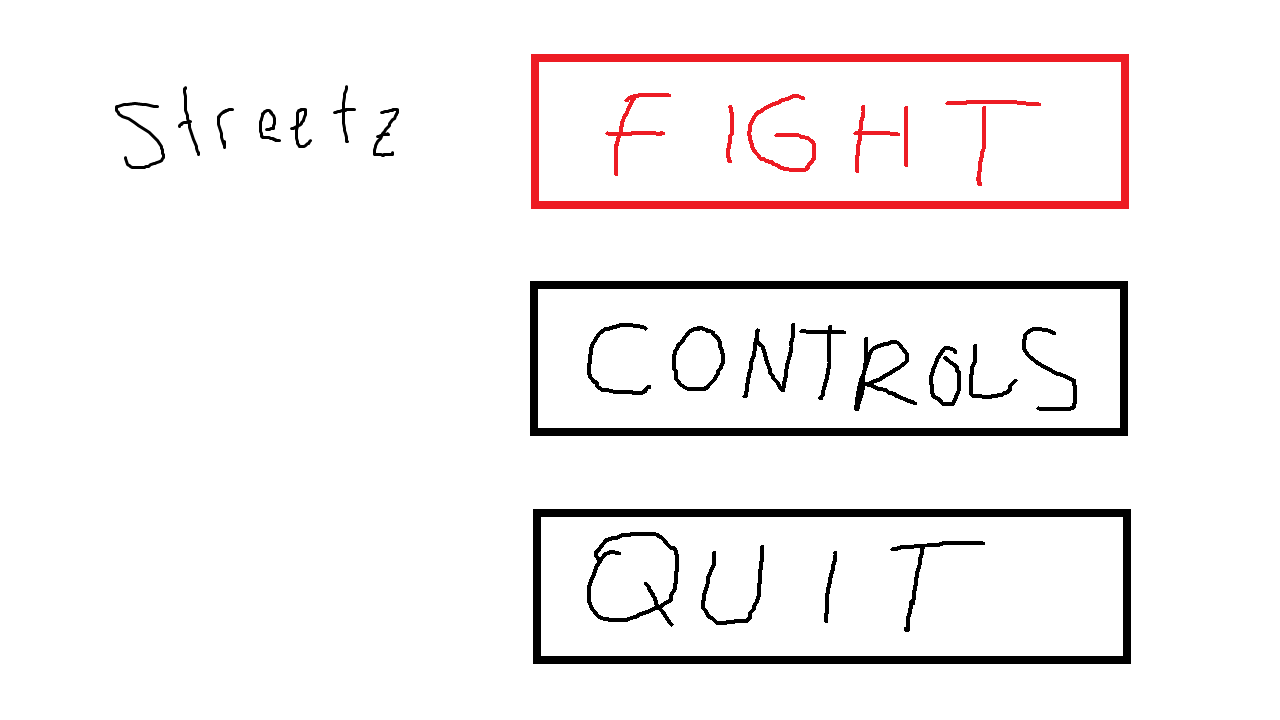 Streetz
FIGHT
CONTROLS
QUIT